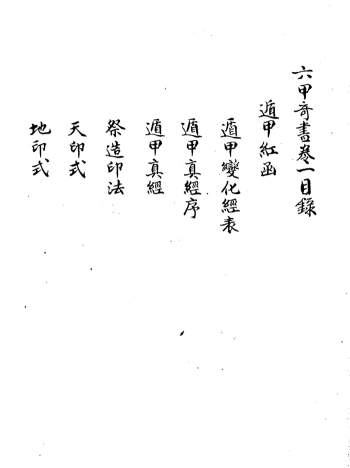 六甲奇書卷一目錄
遁甲紅函
遁甲變化經表
遁甲真經序
遁甲真經
祭造印法
天印式
地印式